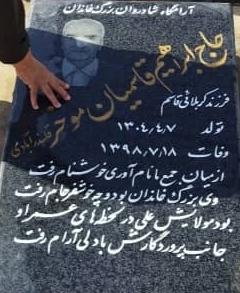 آرامگاه شادروان بزرگ خاندان
حاج ابراهیم قاسمیان موخر
قلندرآبادی
فرزند کربلائی قاسم
تولد ۱۳۰۴٫۴٫۷
وفات ۱۳۹۸٫۷٫۱۸
از میان جمع ما نام آوری خوشنام رفت
وی بزرگ خاندان بود و چه خوش فرجام رفت
بود مولایش علی در لحظه های عمر او
جانب پروردگارش با دلی آرام رفت